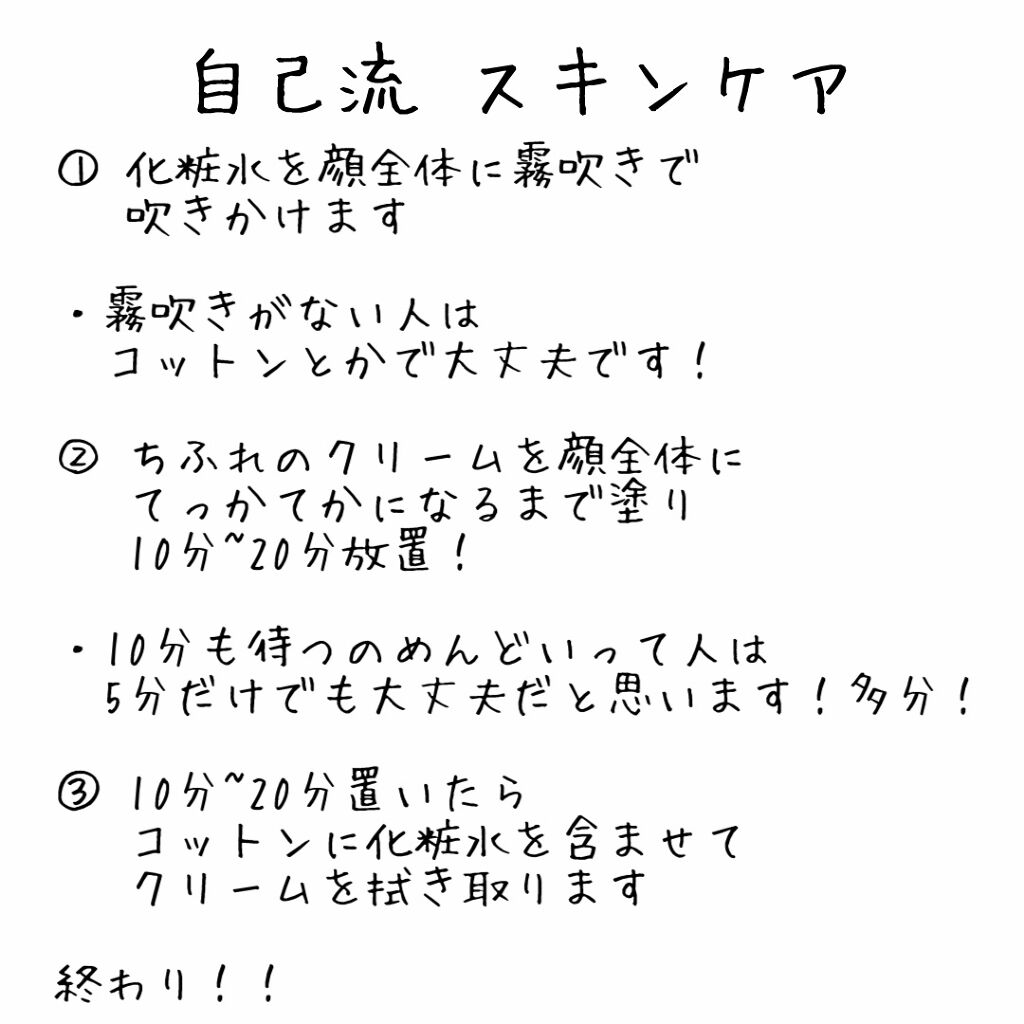 自己流 スキンケア
① 化粧水を顔全体に霧吹きで
吹きかけます
・霧吹きがない人は
コットンとかで大丈夫です!
② ちふれのクリームを顔全体に
てっかてかになるまで塗り
10分~20分放置!
・10分も待つのめんどいって人は
5分だけでも大丈夫だと思います!多分!
③ 10分~20分置いたら
コットンに化粧水を含ませて
クリームを拭き取ります
終わり!!